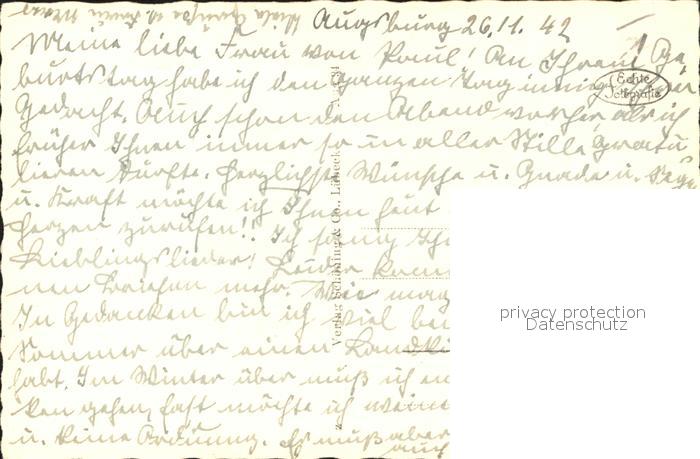 Viele Grüße
Augsburg 26.11.42
Meine liebe Frau von Paul! An Ihrem Ge
burtstag habe ich den ganzen Tag innig
gedacht. Auch schon den Abend vorher, als ich
früher Ihnen immer so in aller Stille gratu
lieren durfte. Herzlichste Wünsche u. Gnade u.
u. Kraft möchte ich Ihnen heut
Herzen zurufen!! Ich
Lieblingslieder! Leider kann
nen mehr. Wie mag
In Gedanken bin ich viel bei
Sommer über einen
habt. Im Winter über muß ich
ken gehen, fast möchte ich weine
u. keine Ordnung. Es muß aber
auch
Echte
Fotografie
Verlag Schöning & Co., Lübeck
privacy protection
Datenschutz